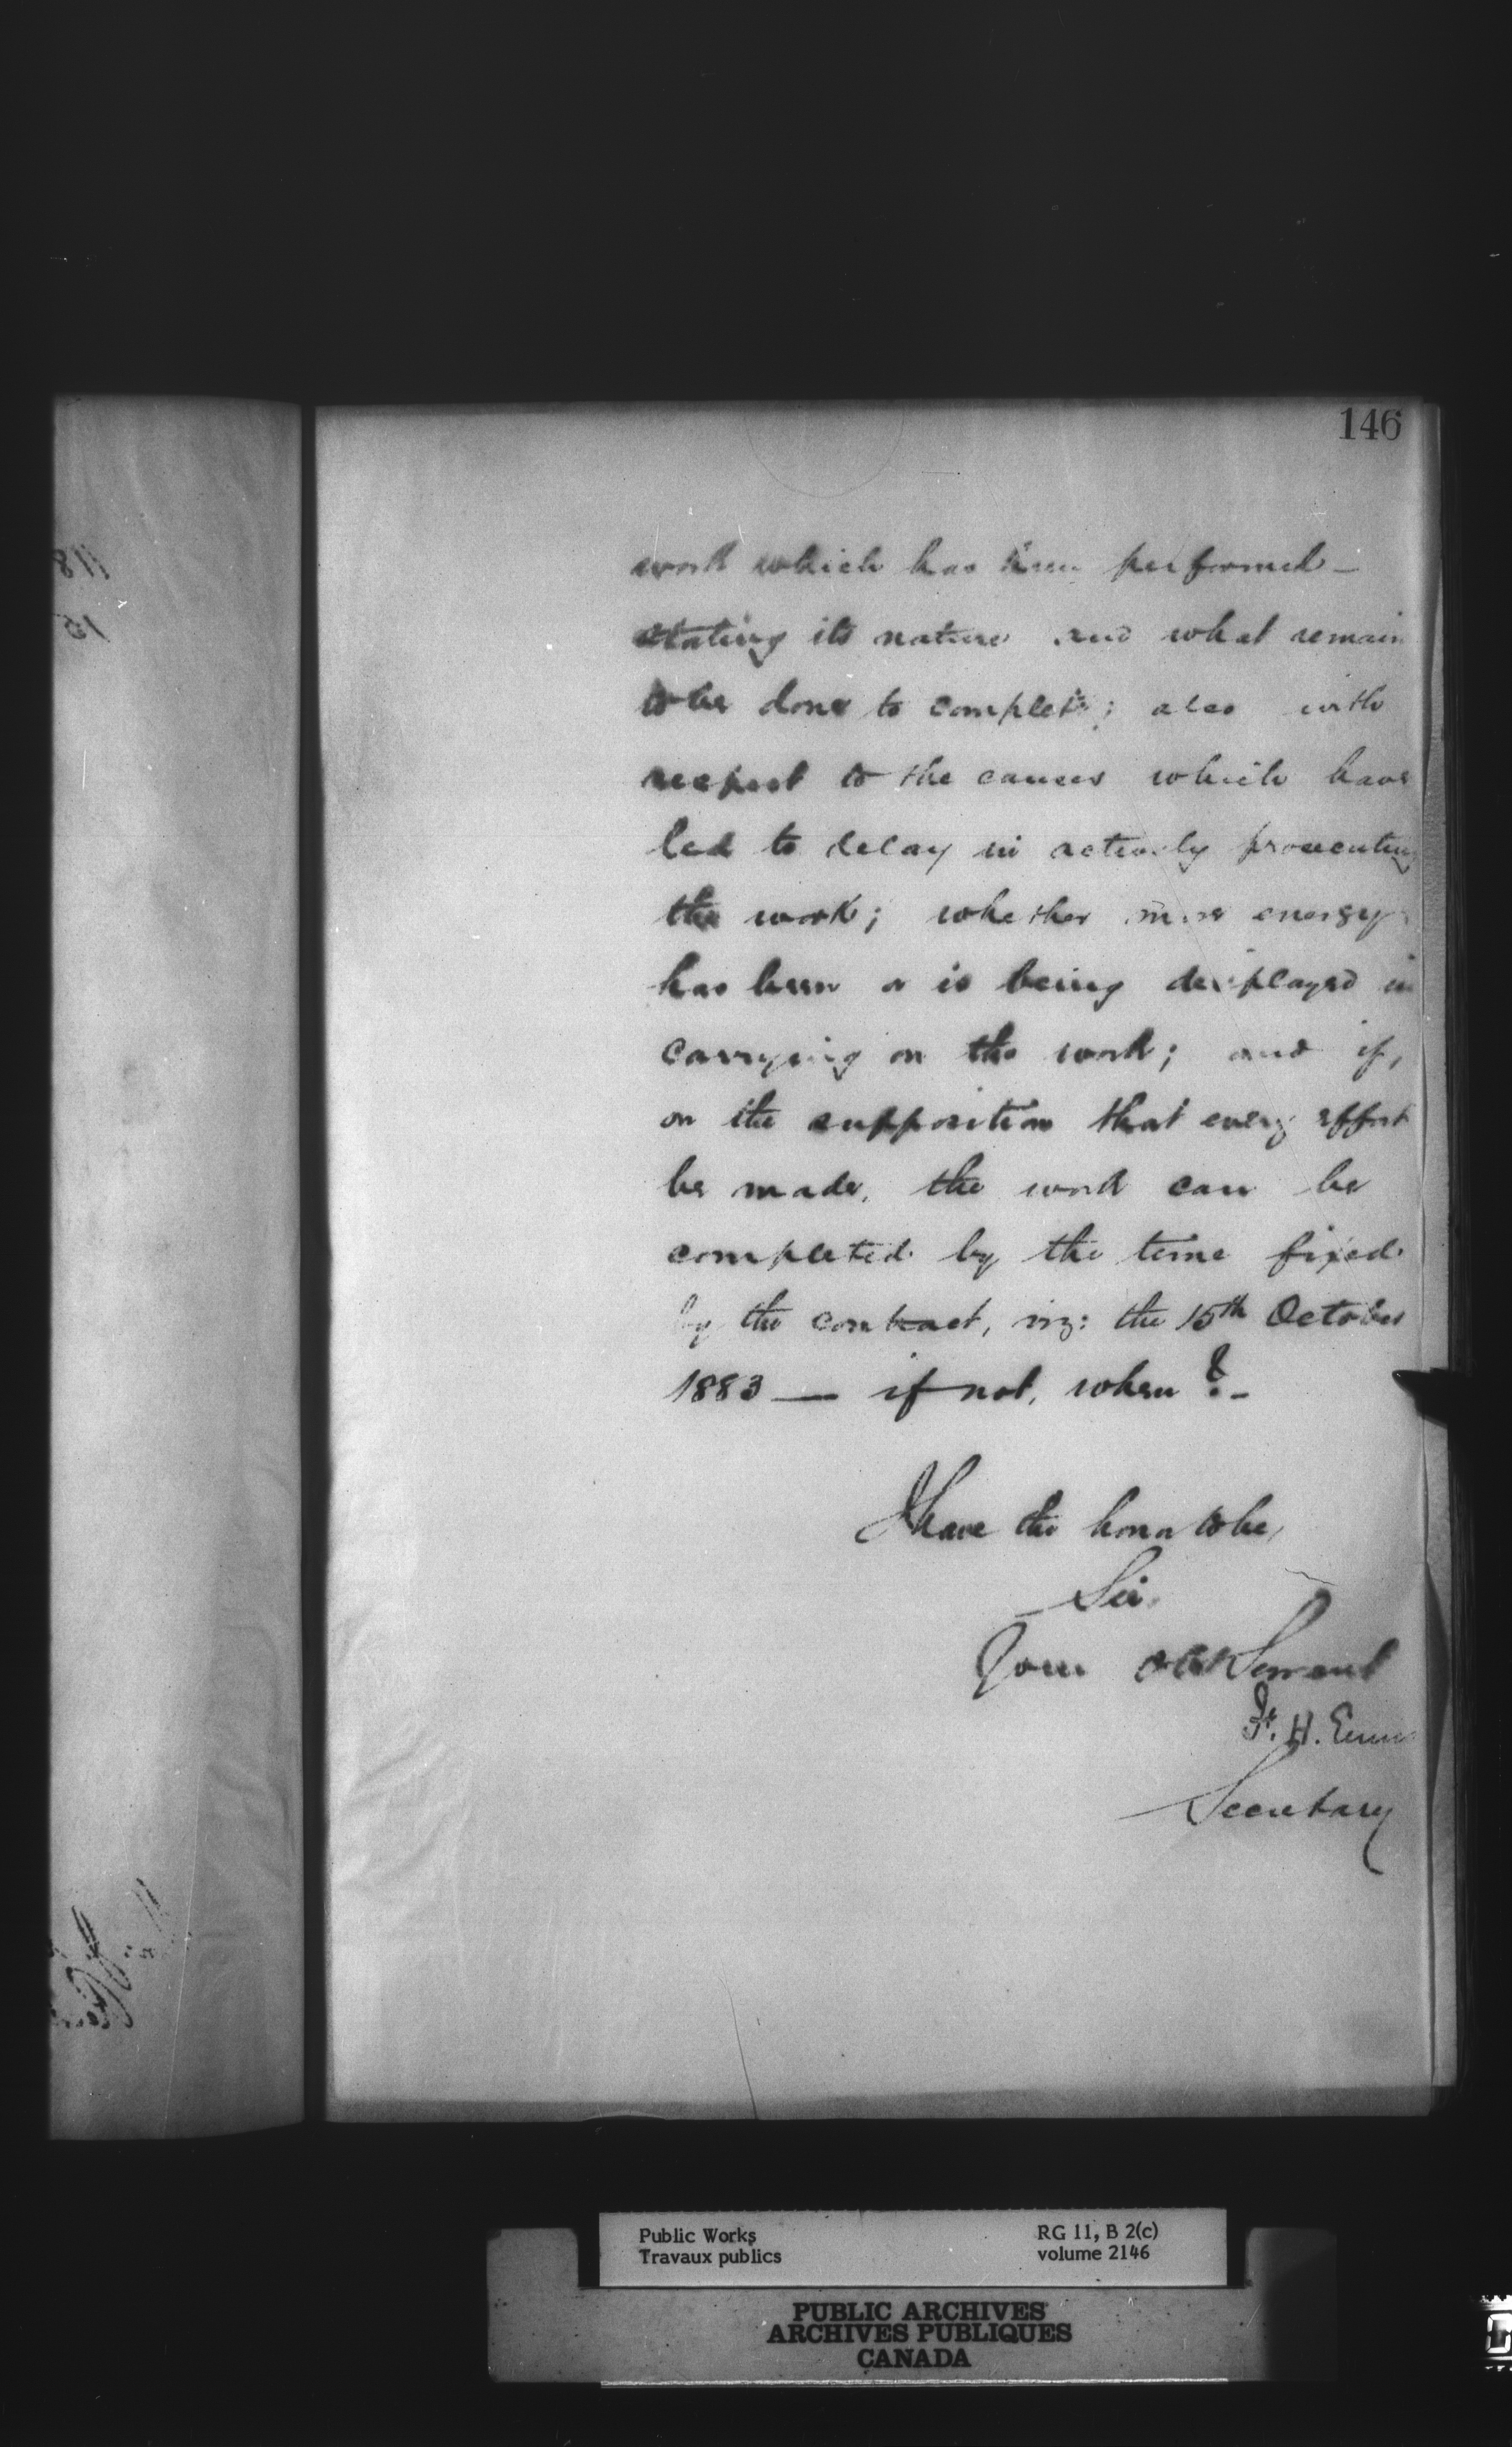 146
work which has been performed —
stating its nature and what remain
to be done to complete; also with
respect to the causes which have
led to delay in actively prosecuting
the work; whether more energy
has been or is being displayed in
carrying on the work; and if,
on the supposition that every effort
be made, the work can be
completed by the time fixed
by the contract, viz: the 15th October
1883 — if not, when? —
I have the honor to be,
Sir,
Your obt Servant
F. H. Ennis
Secretary
Public Works
Travaux publics
RG 11, B 2(c)
volume 2146
PUBLIC ARCHIVES
ARCHIVES PUBLIQUES
CANADA